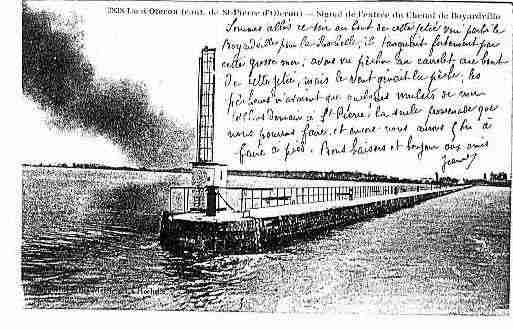 2828 Ile d'Oleron (cant. de St-Pierre d'Oleron) — Signal de l'entrée du Chenal de Boyardville
Sommes allés ce soir au bout de cette jetée voir partir le
Boyardville pour la Rochelle, il tanguait fortement par
cette grosse mer; avons vu pêcher au carrelet au bout
de cette jetée, mais le vent gênait la pêche, les
pêcheurs n'avaient que quelques mulets de
demain à St Pierre, la seule promenade que
nous pourrons faire, et encore nous aurons à
faire à pied. Bons baisers et bonjour aux amis
Jeanne